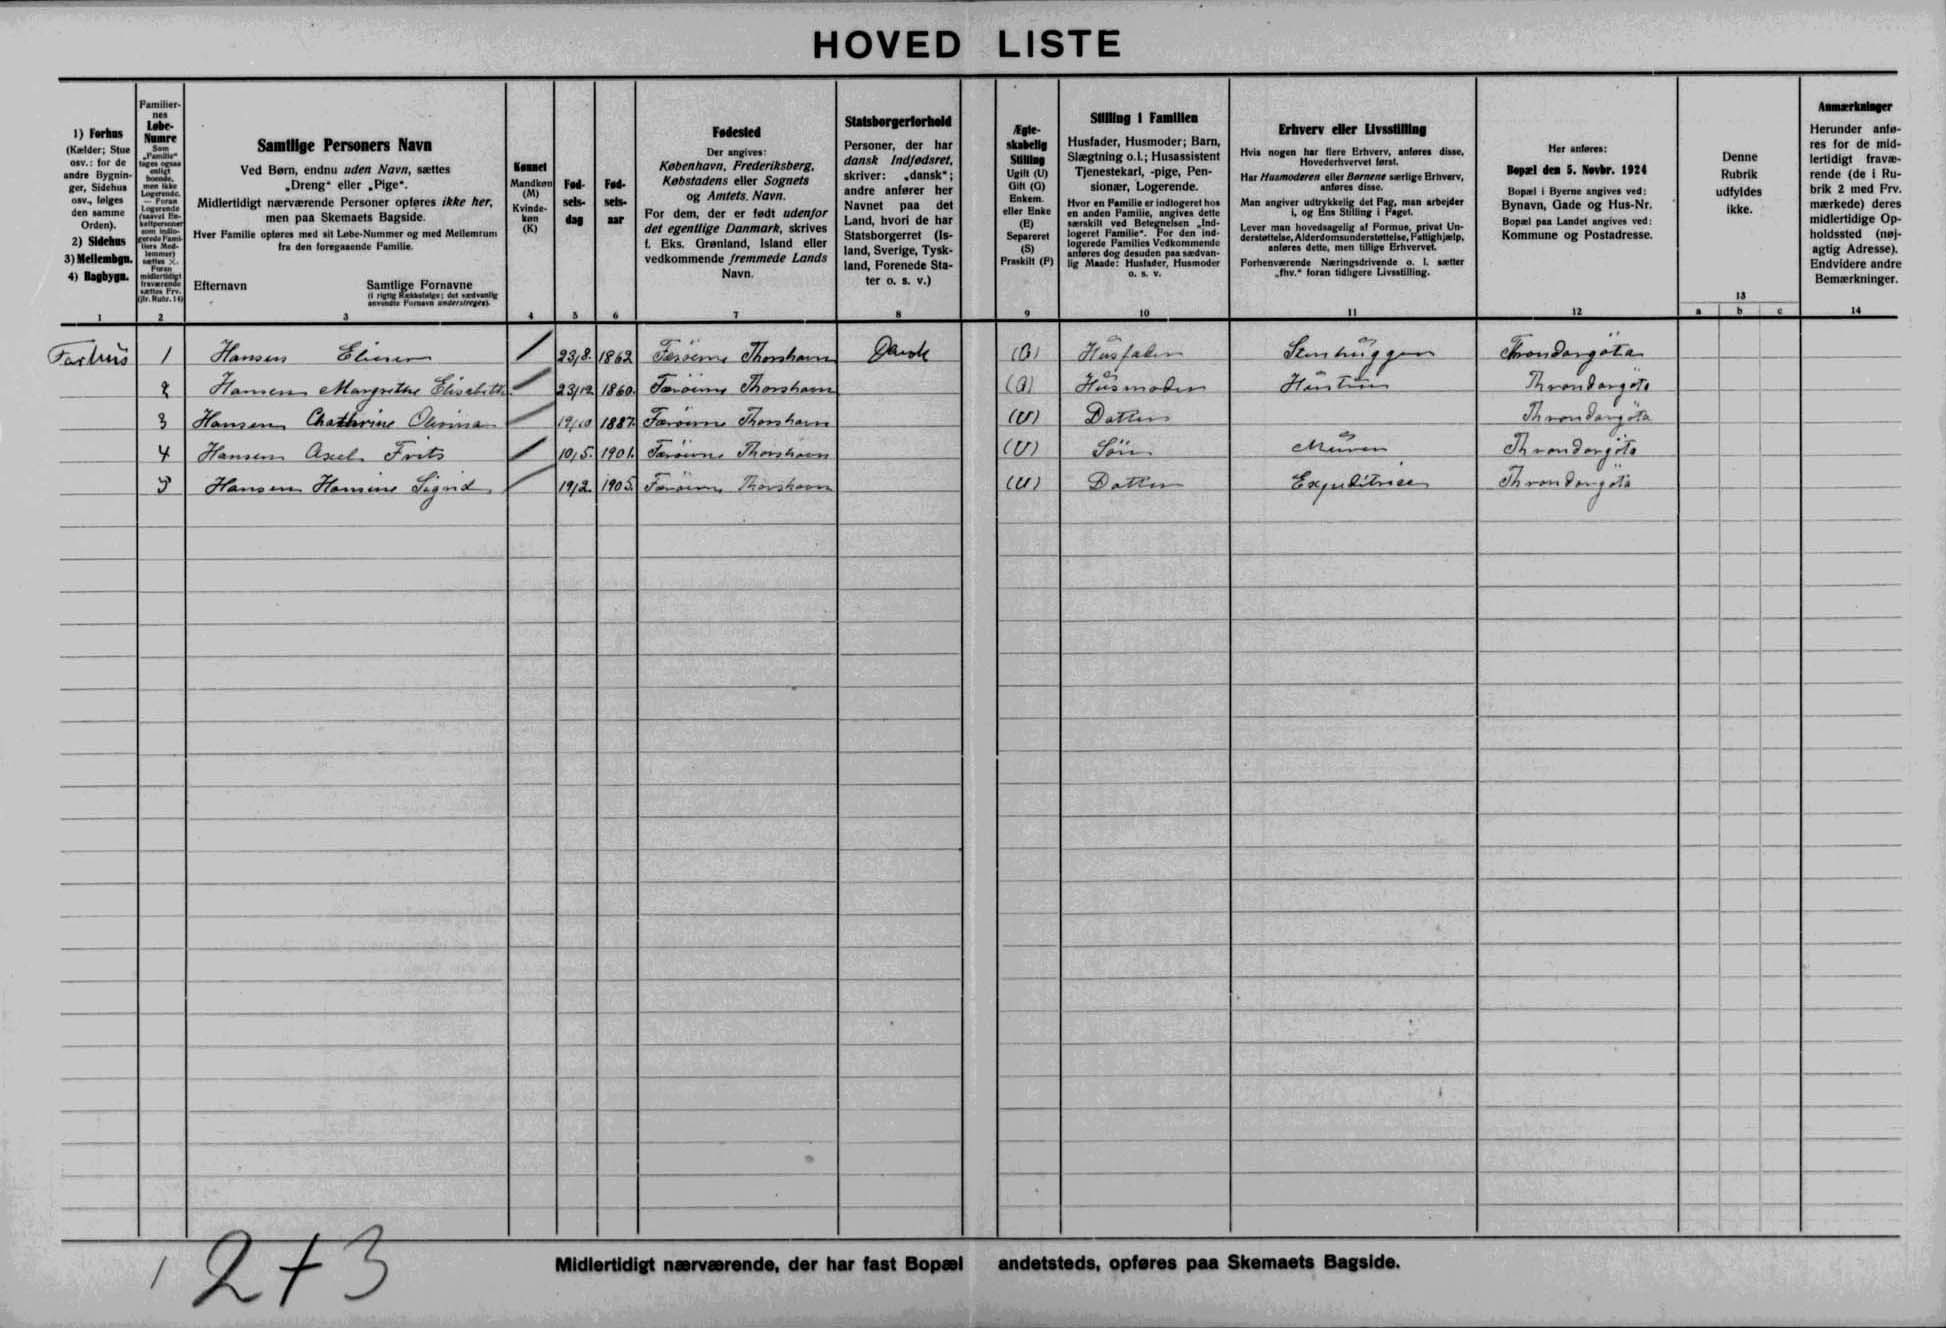 HOVED LISTE
1) Forhus
(Kælder; Stue
osv.: for de
andre Bygnin-
ger, Sidehus
osv., følges
den samme
Orden).
2) Sidehus
3) Mellembgn.
4) Bagbygn.
1
Familier-
nes
Løbe-
Numre
Som
„Familie“
tages ogsaa
enligt
boende,
men ikke
Logerende.
— Foran
Logerende
(saavel En-
keltpersoner
som indlo-
gerede Fami-
liers Med-
lemmer)
sættes ×.
Foran
midlertidigt
fraværende
sættes Frv.
(jfr. Rubr. 14)
2
Samtlige Personers Navn
Ved Børn, endnu uden Navn, sættes
„Dreng“ eller „Pige“.
Midlertidigt nærværende Personer opføres ikke her,
men paa Skemaets Bagside.
Hver Familie opføres med sit Løbe-Nummer og med Mellemrum
fra den foregaaende Familie.
Efternavn Samtlige Fornavne
(i rigtig Rækkefølge; det sædvanlig
anvendte Fornavn understreges).
3
Kønnet
Mandkøn
(M)
Kvinde-
køn
(K)
4
Fød-
sels-
dag
5
Fød-
sels-
aar
6
Fødested
Der angives:
København, Frederiksberg,
Købstadens eller Sognets
og Amtets Navn.
For dem, der er født udenfor
det egentlige Danmark, skrives
f. Eks. Grønland, Island eller
vedkommende fremmede Lands
Navn.
7
Statsborgerforhold
Personer, der har
dansk Indfødsret,
skriver: „dansk“;
andre anfører her
Navnet paa det
Land, hvori de har
Statsborgerret (Is-
land, Sverige, Tysk-
land, Forenede Sta-
ter o. s. v.)
8
Ægte-
skabelig
Stilling
Ugift (U)
Gift (G)
Enkem.
eller Enke
(E)
Separeret
(S)
Fraskilt (F)
9
Stilling i Familien
Husfader, Husmoder; Barn,
Slægtning o.l.; Husassistent
Tjenestekarl, -pige, Pen-
sionær, Logerende.
Hvor en Familie er indlogeret hos
en anden Familie, angives dette
særskilt ved Betegnelsen „Ind-
logeret Familie“. For den ind-
logerede Families Vedkommende
anføres dog desuden paa sædvan-
lig Maade: Husfader, Husmoder
o. s. v.
10
Erhverv eller Livsstilling
Hvis nogen har flere Erhverv, anføres disse,
Hovederhvervet først.
Har Husmoderen eller Børnene særlige Erhverv,
anføres disse.
Man angiver udtrykkelig det Fag, man arbejder
i, og Ens Stilling i Faget.
Lever man hovedsagelig af Formue, privat Un-
derstøttelse, Alderdomsunderstøttelse, Fattighjælp,
anføres dette, men tillige Erhvervet.
Forhenværende Næringsdrivende o. l. sætter
„fhv.“ foran tidligere Livsstilling.
11
Her anføres:
Bopæl den 5. Novbr. 1924
Bopæl i Byerne angives ved:
Bynavn, Gade og Hus-Nr.
Bopæl paa Landet angives ved:
Kommune og Postadresse.
12
Denne
Rubrik
udfyldes
ikke.
13
a b c
Anmærkninger
Herunder anfø-
res for de mid-
lertidigt fravæ-
rende (de i Ru-
brik 2 med Frv.
mærkede) deres
midlertidige Op-
holdssted (nøj-
agtig Adresse).
Endvidere andre
Bemærkninger.
14
Forhus 1 Hansen 23/8. 1862 Færöerne Thorshavn Dansk (G) Husfader Stenhugger Throndargöta
2 Hansen Margrethe Elisabeth 23/12 1860. Færöerne Thorshavn (G) Husmoder Hustru Throndargöta
3 Hansen Chathrine Olevina 19/10 1887. Færöerne Thorshavn (U) Datter Throndargöta
4 Hansen Axel Frits 10/5. 1901. Færöerne Thorshavn (U) Sön Murer Throndargöta
5 Hansen Hansine Sigrid 19/2. 1905. Færöerne Thorshavn (U) Datter Expeditrice Throndargöta
Midlertidigt nærværende, der har fast Bopæl andetsteds, opføres paa Skemaets Bagside.
1 2+3